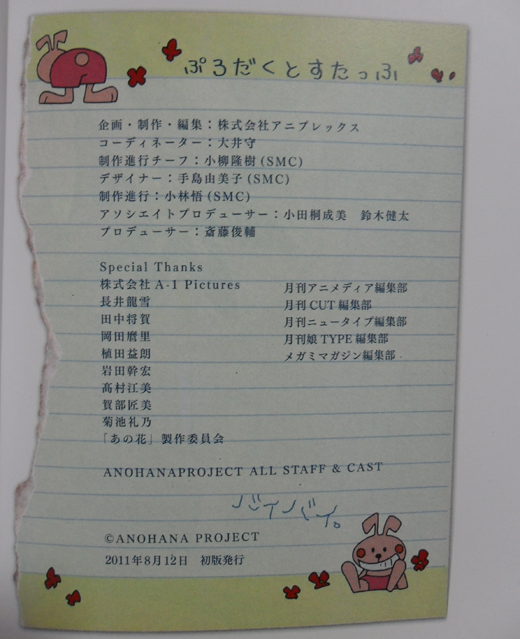 ぷろだくとすたっふ
企画・制作・編集：株式会社アニプレックス
コーディネーター：大井守
制作進行チーフ：小柳隆樹(SMC)
デザイナー：手島由美子(SMC)
制作進行：小林悟(SMC)
アソシエイトプロデューサー：小田桐成美　鈴木健太
プロデューサー：斎藤俊輔
Special Thanks
株式会社 A-1 Pictures
長井龍雪
田中将賀
岡田麿里
植田益朗
岩田幹宏
高村江美
賀部匠美
菊池礼乃
「あの花」製作委員会
月刊アニメディア編集部
月刊CUT編集部
月刊ニュータイプ編集部
月刊娘TYPE編集部
メガミマガジン編集部
ANOHANAPROJECT ALL STAFF & CAST
バイバイ。
©ANOHANA PROJECT
2011年8月12日　初版発行